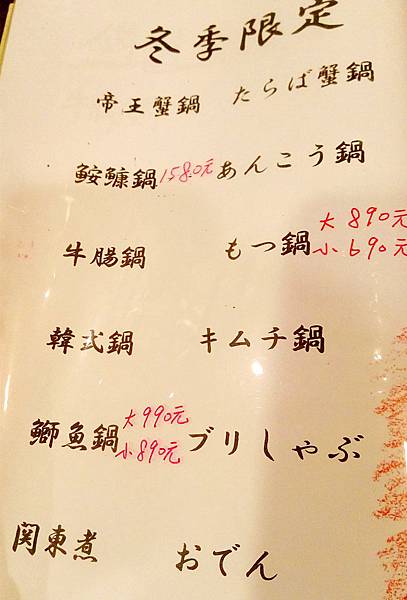 冬季限定
帝王蟹鍋 たらば蟹鍋
鮟鱇鍋 1580元 あんこう鍋
牛腸鍋 もつ鍋 大 890元
小 690元
韓式鍋 キムチ鍋
鰤魚鍋 大 990元 ブリしゃぶ
小 890元
関東煮 おでん